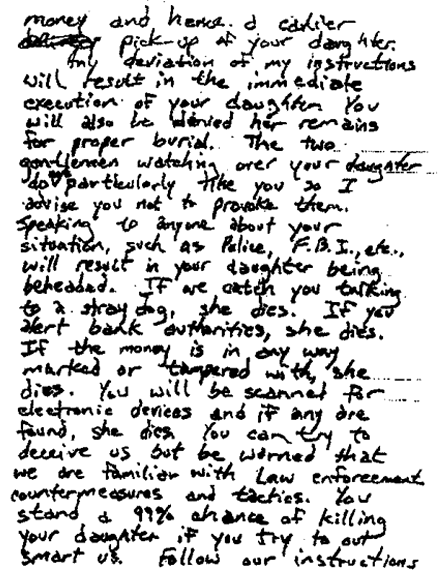 money and hence. a earlier
delivery pick-up of your daughter.
Any deviation of my instructions
will result in the immediate
execution of your daughter. You
will also be denied her remains
for proper burial. The two
gentlemen watching over your daughter
do not particularly like you so I
advise you not to provoke them.
Speaking to anyone about your
situation, such as Police, F.B.I., etc.,
will result in your daughter being
beheaded. If we catch you talking
to a stray dog, she dies. If you
alert bank authorities, she dies.
If the money is in any way
marked or tampered with, she
dies. You will be scanned for
electronic devices and if any are
found, she dies. You can try to
deceive us but be warned that
we are familiar with Law enforcement
countermeasures and tactics. You
stand a 99% chance of killing
your daughter if you try to out
smart us. Follow our instructions